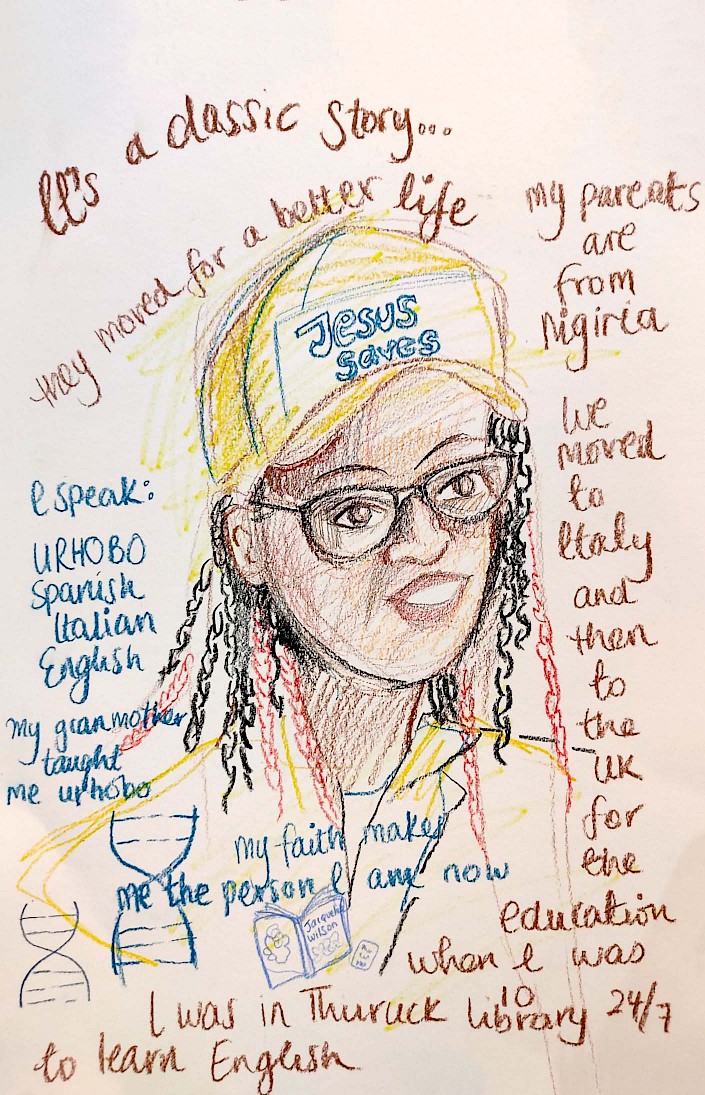 It's a classic story...
they moved for a better life
my parents
are
from
Nigiria
Jesus
saves
We
moved
to
Italy
and
then
to
the
UK
for
the
education
when I was
10
I speak:
URHOBO
Spanish
Italian
English
my granmother
taught
me urhobo
my faith makes
me the person I am now
Jacqueline
wilson
I was in Thuruck library 24/7
to learn English